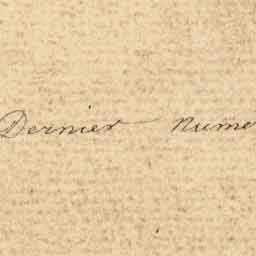 Dernier nume